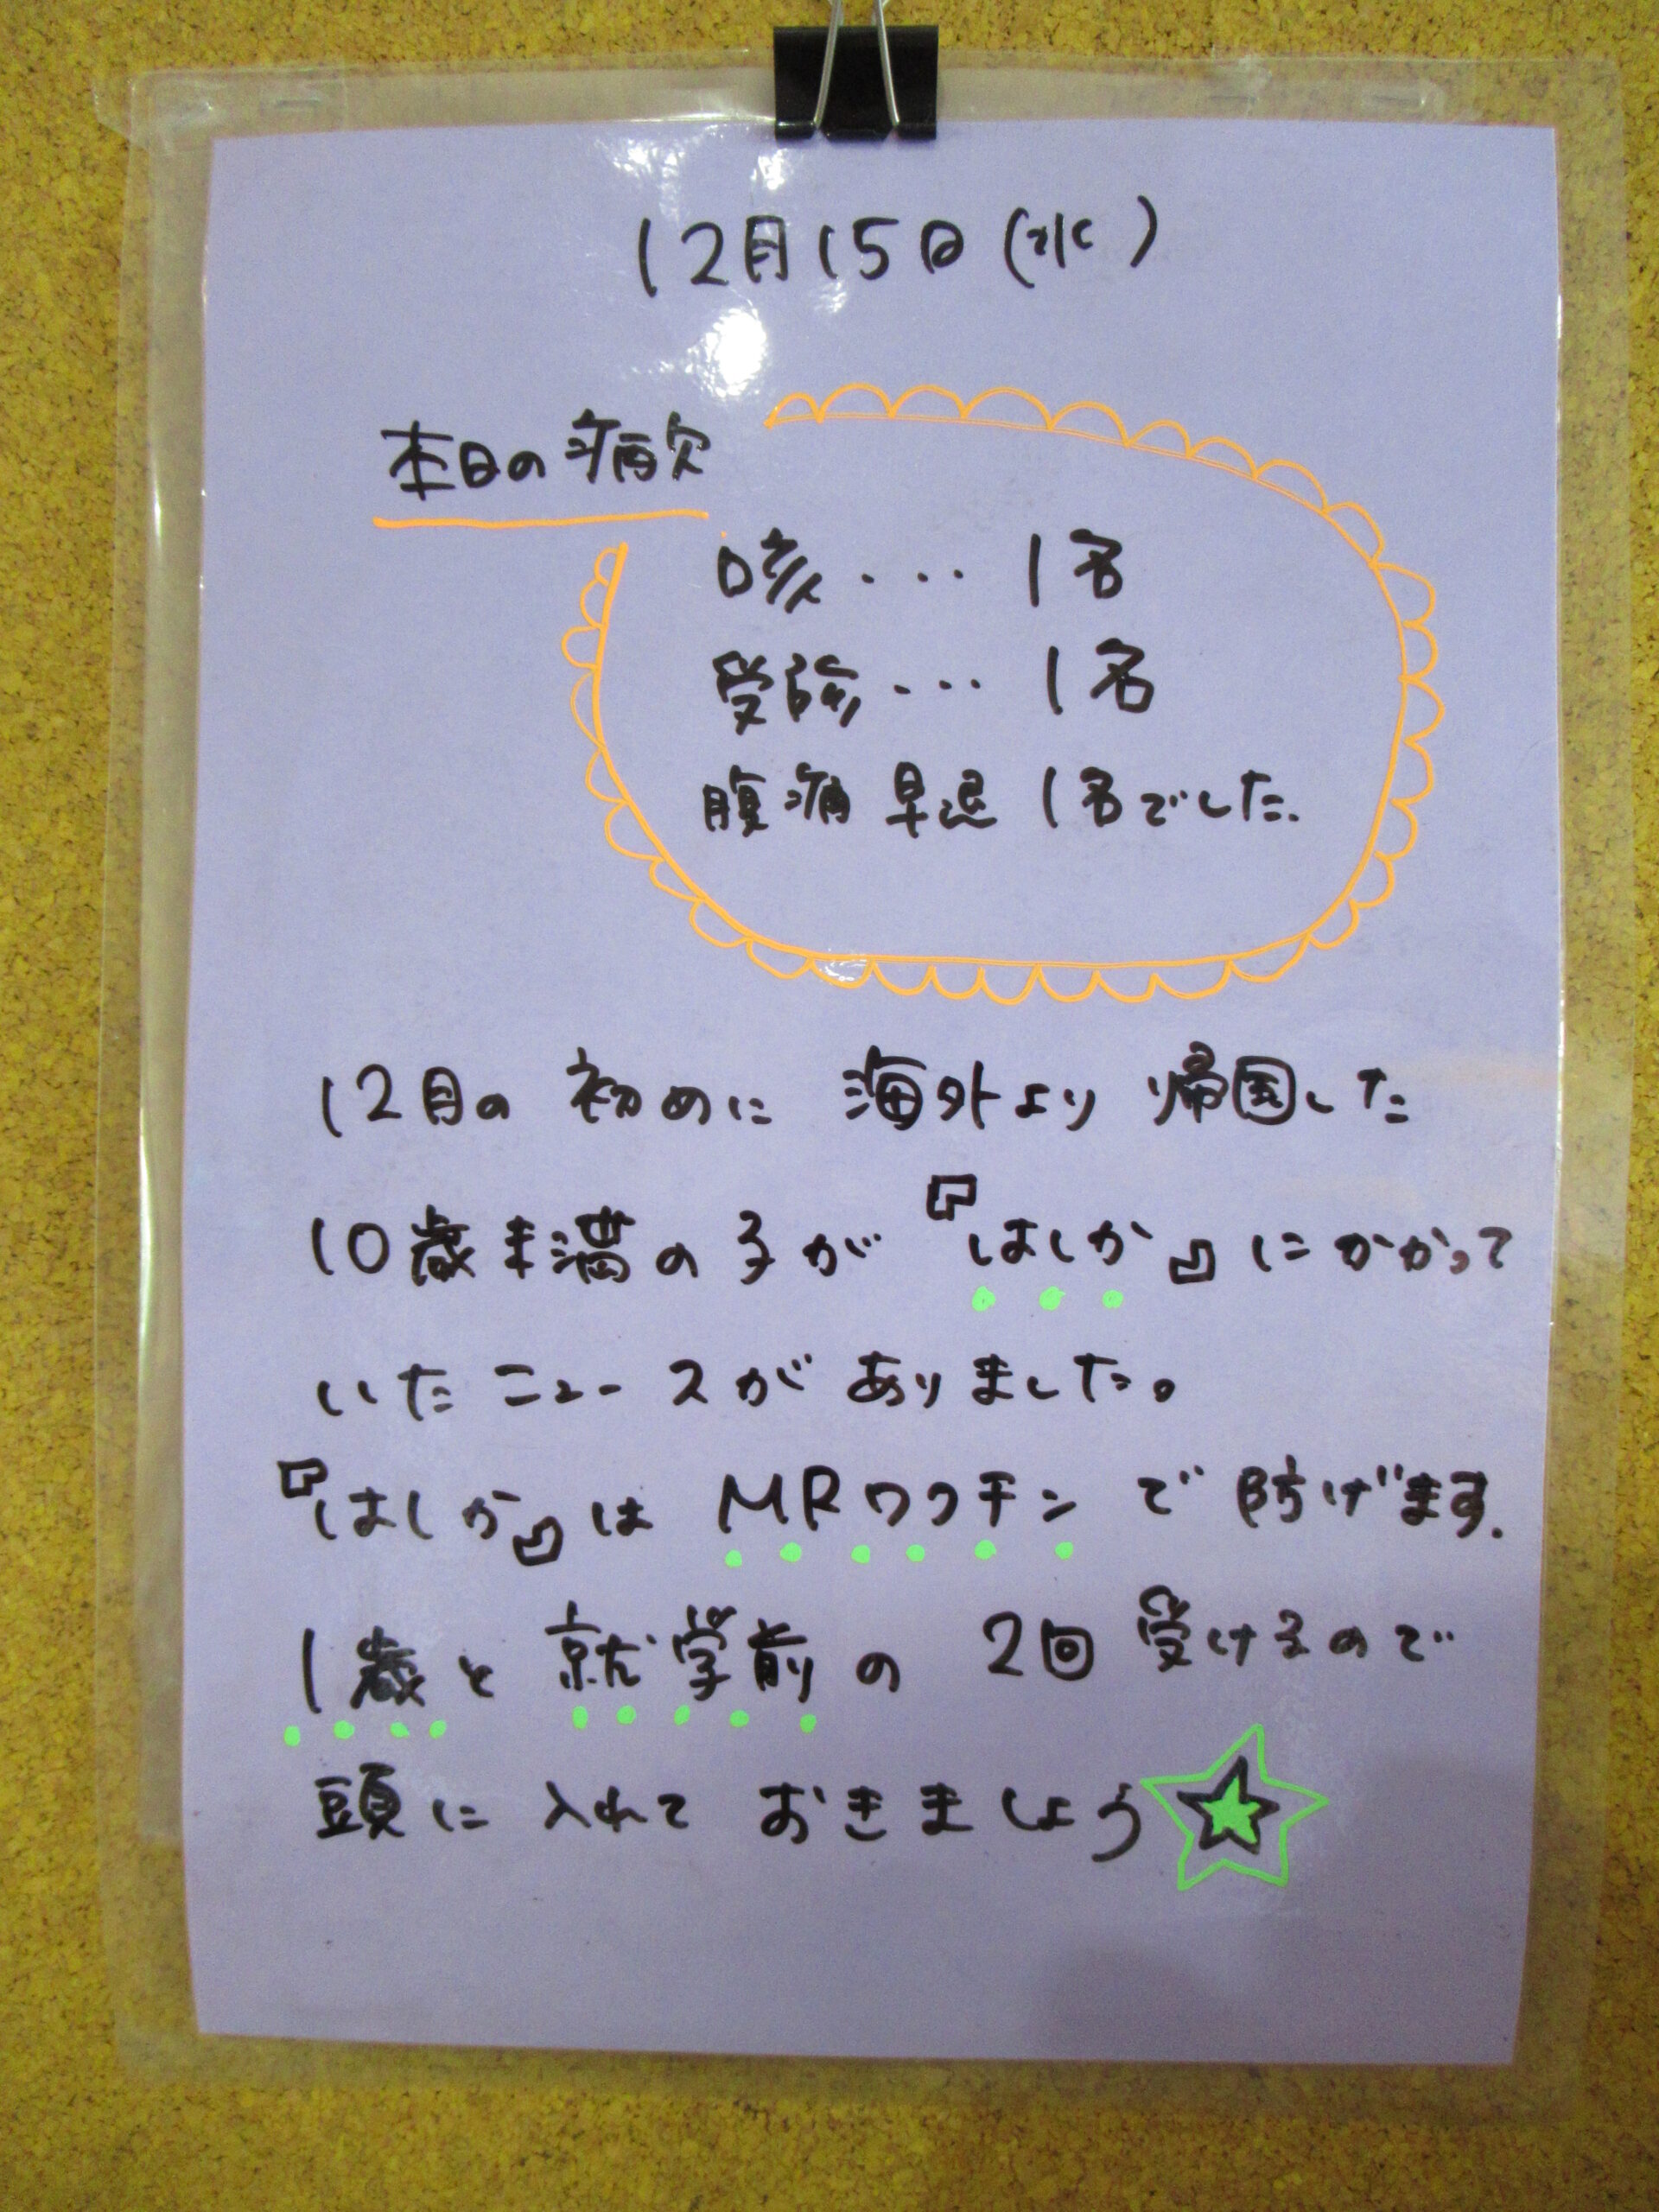 12月15日(水)
本日の病欠
咳・・・1名
受診・・・1名
腹痛 早退 1名でした.
12月の 初めに 海外より 帰国した
10歳未満の子が『はしか』にかかって
いた ニュースが ありました。
『はしか』は MRワクチン で 防げます.
1歳と 就学前の 2回 受けるので
頭に 入れて おきましょう